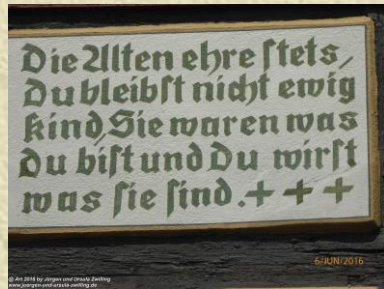 Die Alten ehre stets,
Du bleibst nicht ewig
Kind, Sie waren was
Du bist und Du wirst
was sie sind. + + +
6/JUN/2016
© Art 2016 by Jürgen und Ursula Zwilling
www.juergen-und-ursula-zwilling.de